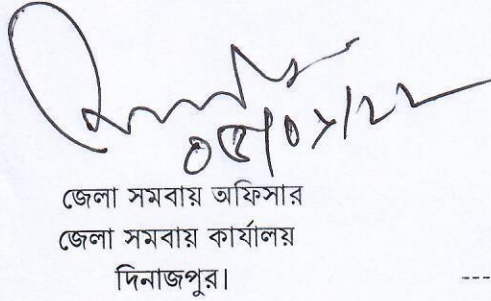 ০৫/০৯/২২
জেলা সমবায় অফিসার
জেলা সমবায় কার্যালয়
দিনাজপুর।
----